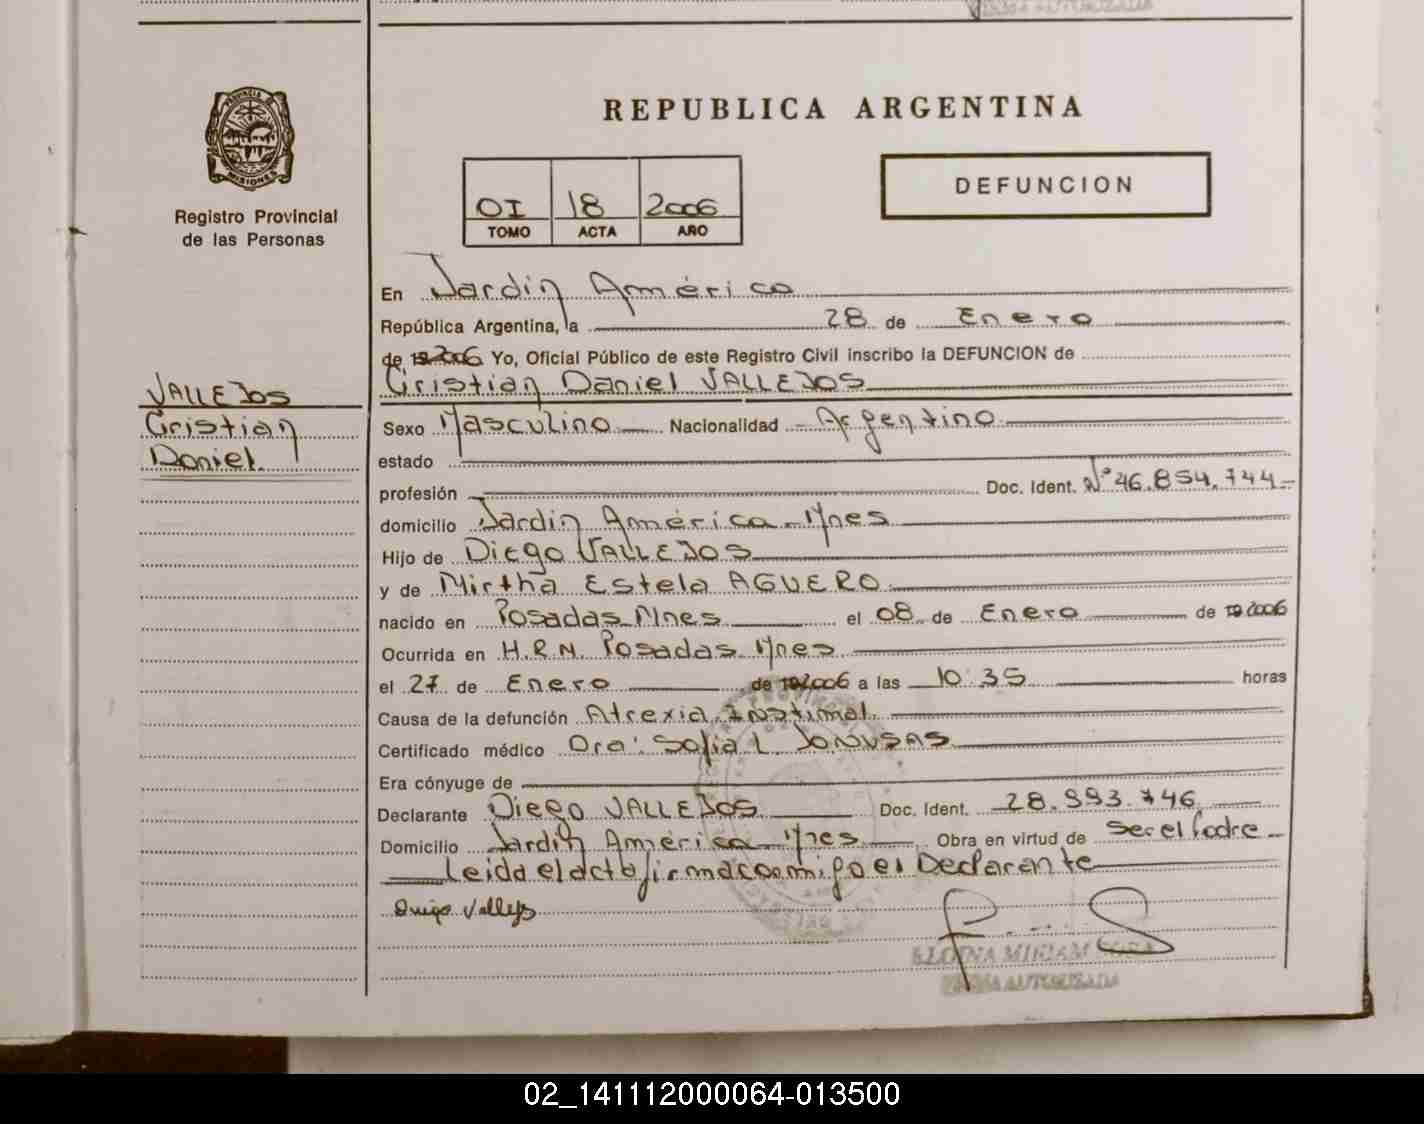 REPUBLICA ARGENTINA
PROVINCIA DE
MISIONES
Registro Provincial
de las Personas
OI 18 2006
TOMO ACTA AÑO
DEFUNCION
En Jardín América
República Argentina, a 28 de Enero
de 2006 Yo, Oficial Público de este Registro Civil inscribo la DEFUNCION de
Cristian Daniel VALLEJOS
VALLEJOS
Cristian
Daniel
Sexo Masculino Nacionalidad Argentino
estado
profesión Doc. Ident. Nº 46.854.744
domicilio Jardín América - Mnes
Hijo de Diego VALLEJOS
y de Mirtha Estela AGUERO
nacido en Posadas Mnes el 08 de Enero de 2006
Ocurrida en H.R.N. Posadas Mnes
el 27 de Enero de 2006 a las 10:35 horas
Causa de la defunción Atrexia Instimal
Certificado médico Dra: Sofia L JONUSAS
Era cónyuge de
Declarante Diego VALLEJOS Doc. Ident. 28.993.746
Domicilio Jardín América Mnes Obra en virtud de Ser el Padre
Leida el acta firma conmigo el Declarante
Diego Vallejos
ELOINA MIRIAM SOSA
FIRMA AUTORIZADA
02_141112000064-013500